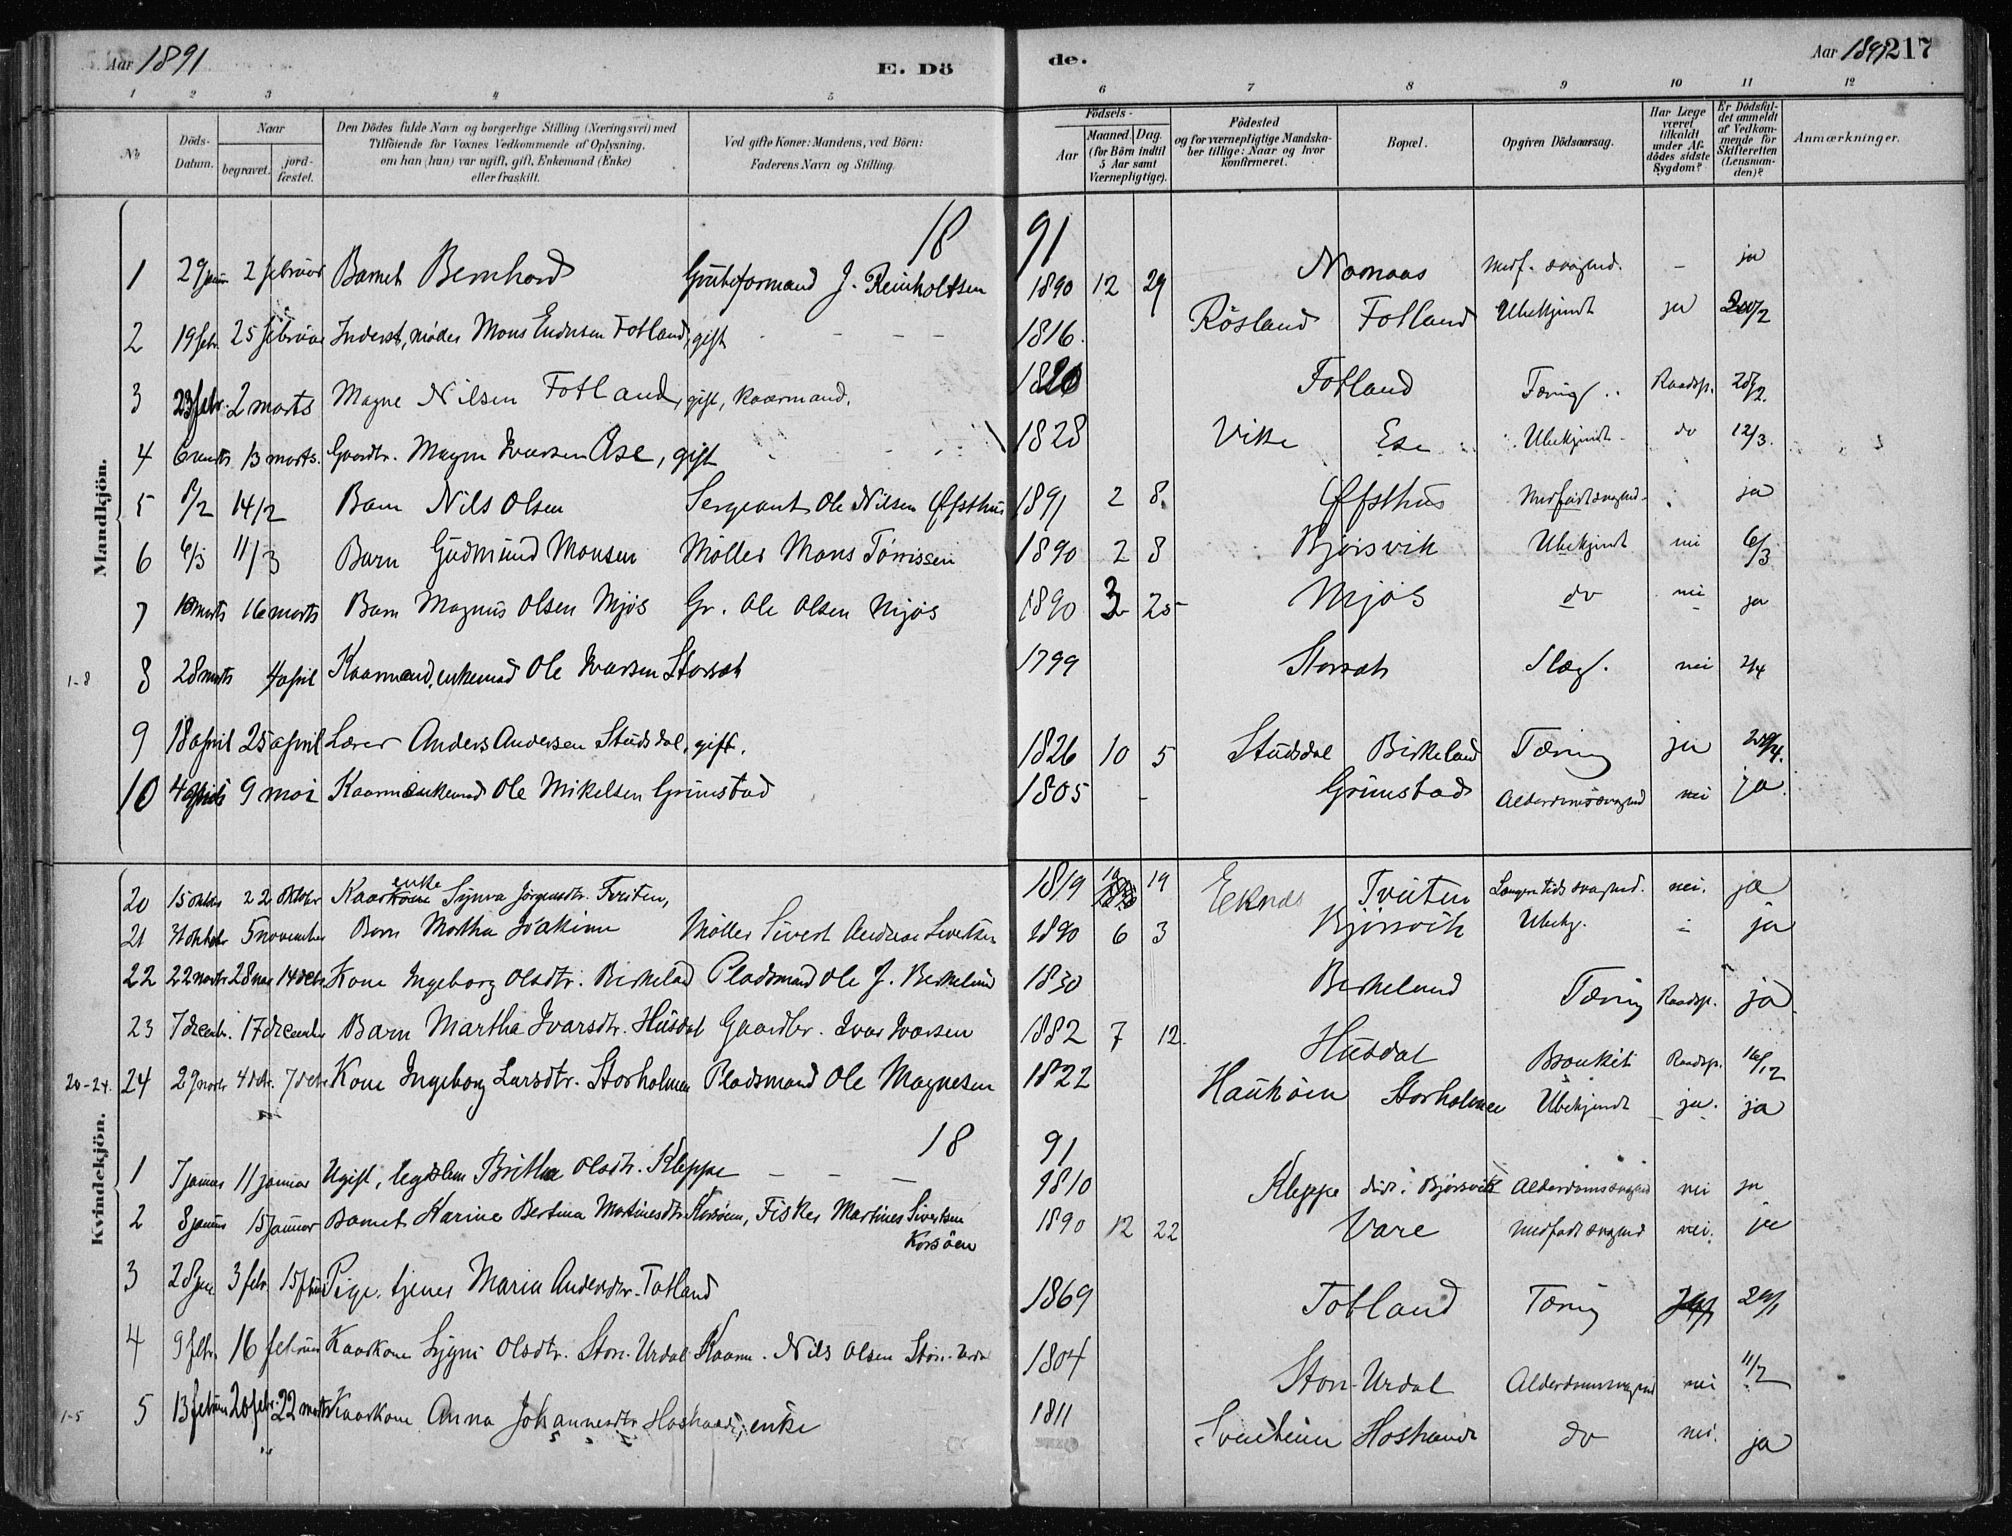 Aar 1891 E. Dö de. Aar 1891 217
1 2 3 4 5 6 7 8 9 10 11 12
No Döds-Datum. Naar begravet. jordfæstet. Den Dödes fulde Navn og borgerlige Stilling (Næringsvei) med Tilföiende for Voxnes Vedkommende af Oplysning, om han (hun) var ugift, gift, Enkemand (Enke) eller fraskilt. Ved gifte Koner: Mandens, ved Börn: Faderens Navn og Stilling. Födsels- Aar Maaned. Dag. (for Börn indtil 5 Aar samt Værnepligtige). Födested og for værnepligtige Mandskaber tillige: Naar og hvor konfirmeret. Bopæl. Opgiven Dödsaarsag. Har Læge været tilkaldt under Afdödes sidste Sygdom? Er Dödsfaldet anmeldt af Vedkommende for Skifteretten (Lensmanden)? Anmærkninger.
Mandkjön.
18 91
1 29 2 februar Barnet Bernhard Grubeformand J. Reinholtsen 1890 12 29 Namaas Medf. svaghed. - ja
2 19 febr. 25 februar Inderst, Mons Endresen Fotland, gift 1816. Rösland Fotland Ubekjendt ja
3 23 febr. 2 marts Magne Nilsen Fotland, gift, kaarmand. Fotland Tæring Raadsp. 28/2.
4 6 marts 13 marts. Gaardbr. Magne Ivarsen Ese, gift 1828 Vike Ese Ubekjendt do 12/3.
5 8/2 14/2 Barn Nils Olsen Sergeant Ole Nilsen Øfsthus 1891 2 8. Øfsthus Medfødt svaghed ja
6 6/3 11/3 Barn Gudmund Monsen Møller Mons Tørrissen 1890 2 8 Bjørsvik Ubekjendt nei 6/3
7 16 marts Barn Magnus Olsen Mjøs Gr. Ole Olsen Mjøs 1890 3 25 Mjøs do nei ja
1-8 8 28 marts 4 april Kaarmand, enkemand Ole Ivarsen Storset 1799 Storset Slag. nei 2/4
9 18 april 25 april Lærer Anders Andersen Studsdal, gift. 1826 10 5 Studsdal Birkeland Tæring ja
10 4 9 mai Kaarm. enkemand Ole Mikelsen Grimstad 1805 - Grimstad Alderdomssvaghed nei ja.
20 15 oktbr 22 oktober Kaarkone enke Synva Jørgensdtr. Tveiten, 1819 10 19 Eknes Tveiten Langv. tids svaghed. nei. ja
21 31 oktober 5 november Barn Martha Joakime Møller Sivert Andreas Sivertsen 1890 6 3 Bjørsvik Ubekj. - ja
22 22 novbr 28 nov 14 debr Kone Ingeborg Olsdtr. Birkeland Pladsmand Ole J. Birkeland 1830 Birkeland Tæring Raadsp. ja
23 7 decembr. 17 december Barn Martha Ivarsdtr. Husdal Gaardbr. Ivar Ivarsen 1882 7 12. Husdal Bronkit Raadsp. 16/12
20-24. 24 27 novbr 4 debr. 7 debr Kone Ingeborg Larsdtr. Storholmen Pladsmand Ole Magnesen 1822 Storholmen Ubekjendt ja. ja
Kvindekjön.
18 91
1 7 januar 11 januar Ugift, legdslem Britha Olsdtr. Kleppe 1810 Kleppe död i Bjørsvik Alderdomssvaghed nei ja
2 8 januar 15 januar Barnet Karine Bertina Martinesdtr. Korsøen, Fisker Martines Sivertsen Korsöen 1890 12 22 Vare Medfødt svaghed nei. ja
3 28 jan 3 febr. 15 februar Pige, tjenes Maria Andersdtr. Totland 1869 Totland Tæring 29/1
4 9 febr. 16 februar Kaarkone Sygni Olsdtr. Stor-Urdal Kaarm. Nils Olsen Stor-Urdal 1804 Stor-Urdal Alderdomssvaghed nei 11/2
1-5 5 13 februar 20 febr. 22 marts Kaarkone Anna Johannesdtr. Hoshovde, enke 1811 do nei. ja